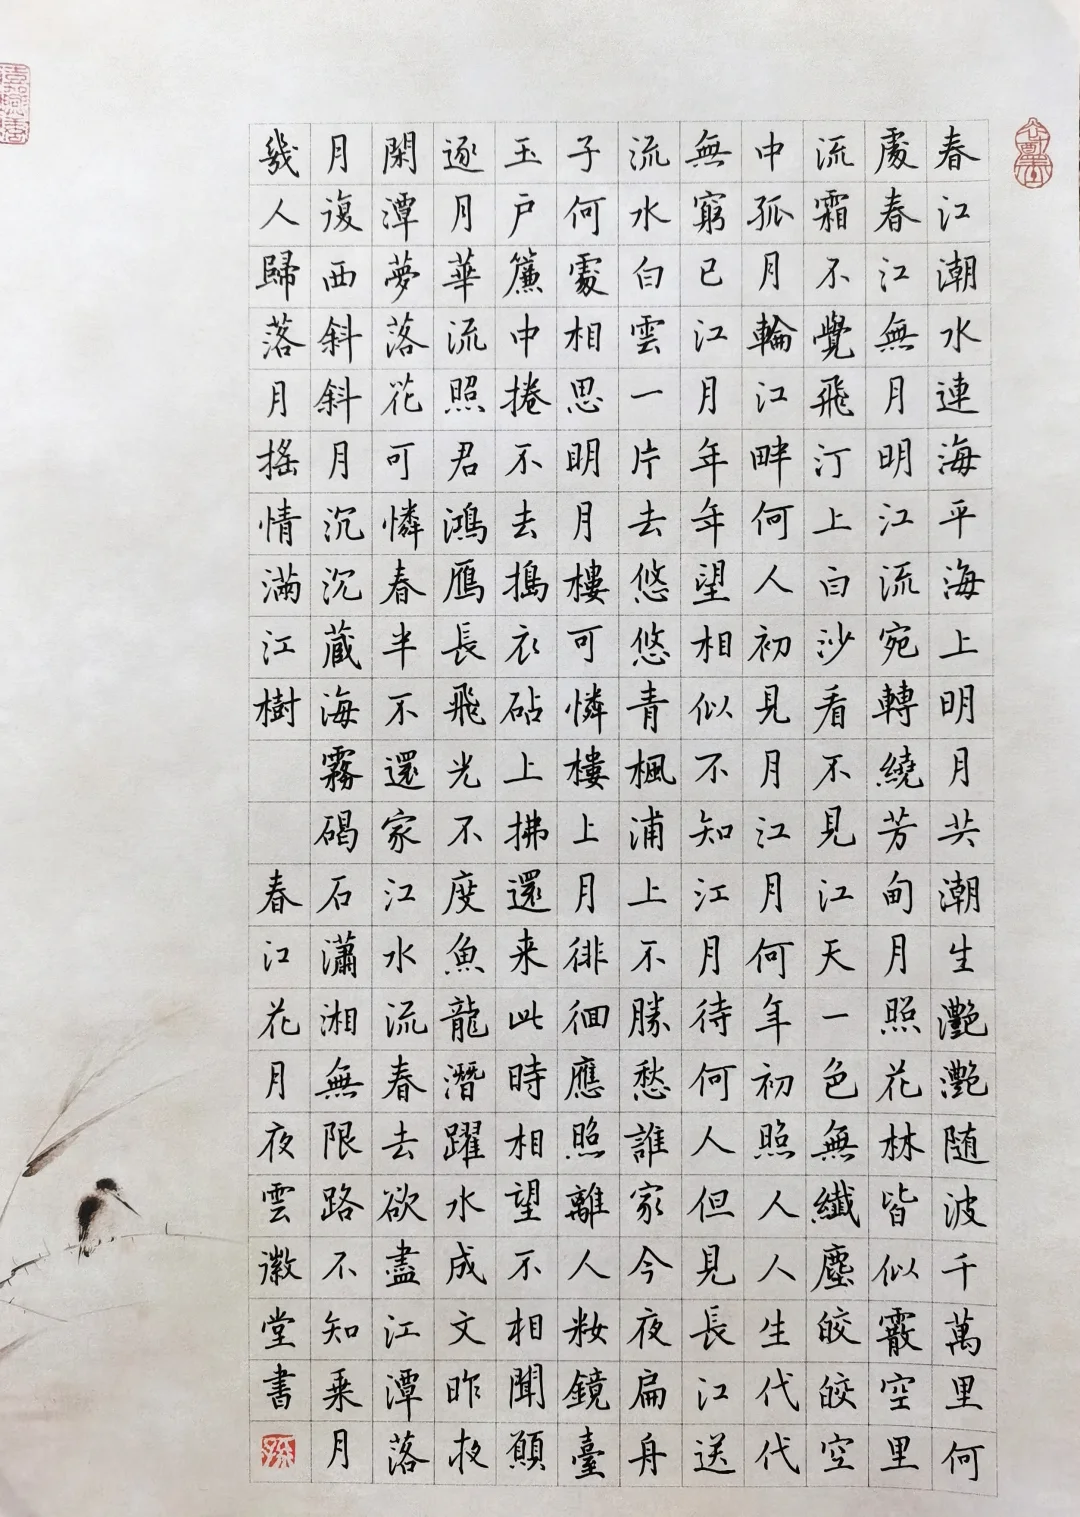 春江潮水連海平海上明月共潮生灧灧随波千萬里何
處春江無月明江流宛轉繞芳甸月照花林皆似霰空里
流霜不覺飛汀上白沙看不見江天一色無纖塵皎皎空
中孤月輪江畔何人初見月江月何年初照人人生代代
無窮已江月年年望相似不知江月待何人但見長江送
流水白雲一片去悠悠青楓浦上不勝愁誰家今夜扁舟
子何處相思明月樓可憐樓上月徘徊應照離人籹鏡臺
玉户簾中捲不去搗衣砧上拂還来此時相望不相聞願
逐月華流照君鴻雁長飛光不度魚龍潛躍水成文昨夜
閑潭夢落花可憐春半不還家江水流春去欲盡江潭落
月復西斜斜月沉沉藏海霧碣石瀟湘無限路不知乘月
幾人歸落月搖情滿江樹 春江花月夜雲徽堂書